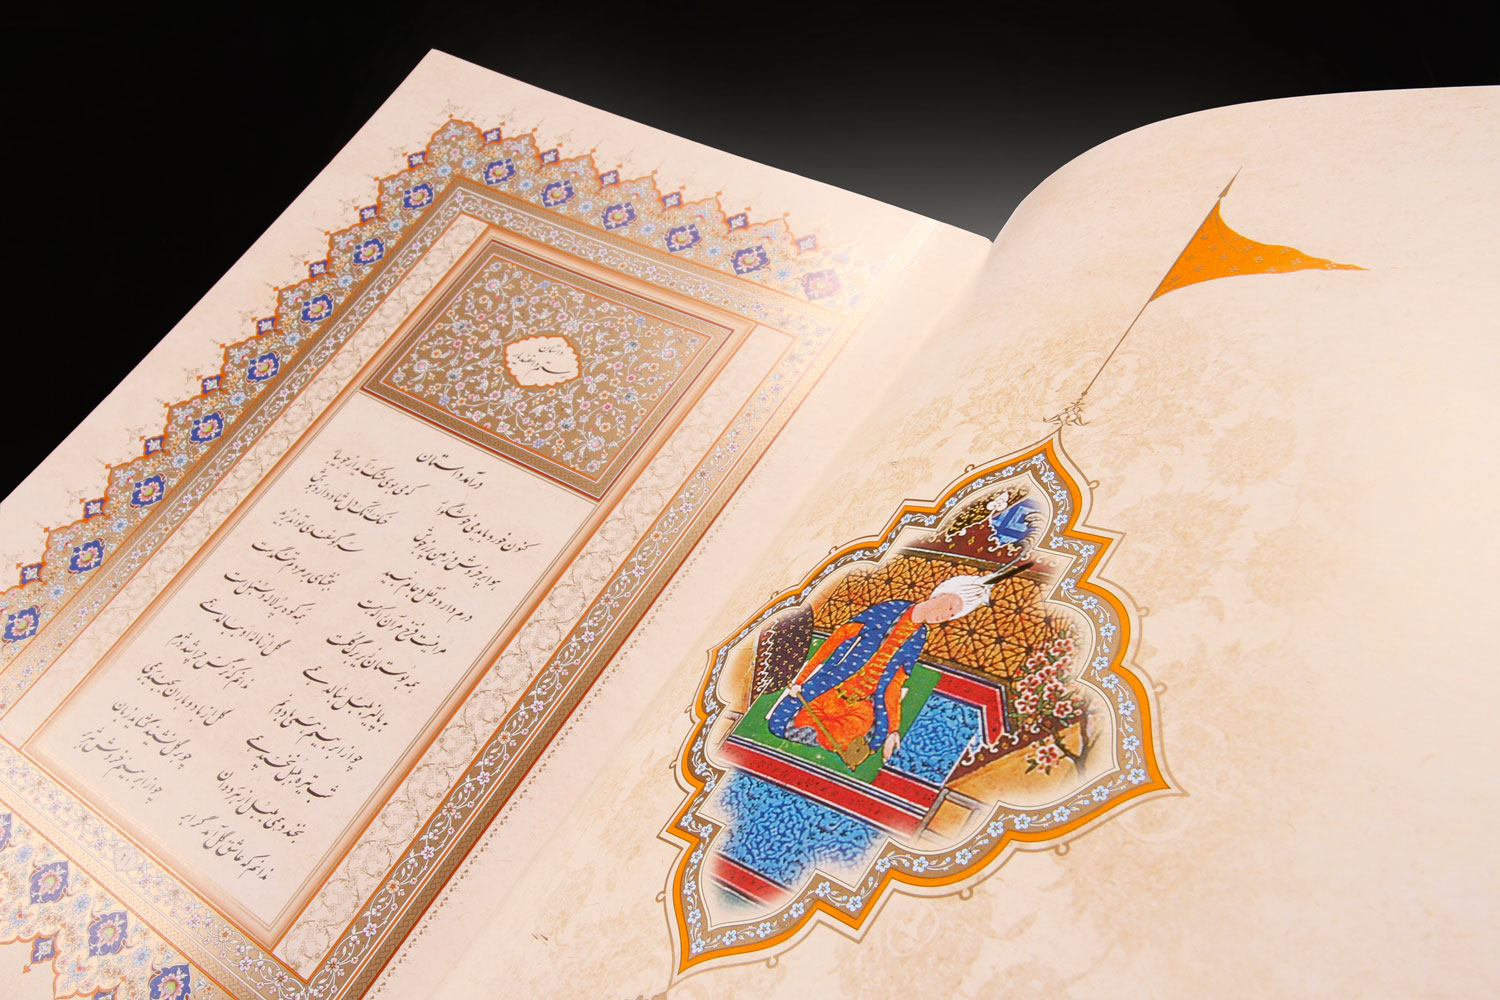 داستان
رستم و اسفندیار
درآمد داستان
کنون خورد باید می خوشگوار که می بوی مشک آید از جویبار
هوا پر خروش و زمین پر ز جوش خنک آنک دل شاد دارد به نوش
درم دارد و نقل و جام نبید سر گوسفندی تواند برید
مرا نیست فرخ مر آن را که هست ببخشای بر مردم تنگدست
همه بوستان زیر برگ گلست همه کوه پر لاله و سنبلست
به پالیز بلبل بنالد همی گل از ناله او ببالد همی
چو از ابر بینم همی باد و نم ندانم که نرگس چرا شد دژم
شب تیره بلبل نخسپد همی گل از باد و باران بجنبد همی
بخندد همی بلبل از هر دوان چو بر گل نشیند گشاید زبان
ندانم که عاشق گل آمد گر ابر چو از ابر بینم خروش هژبر